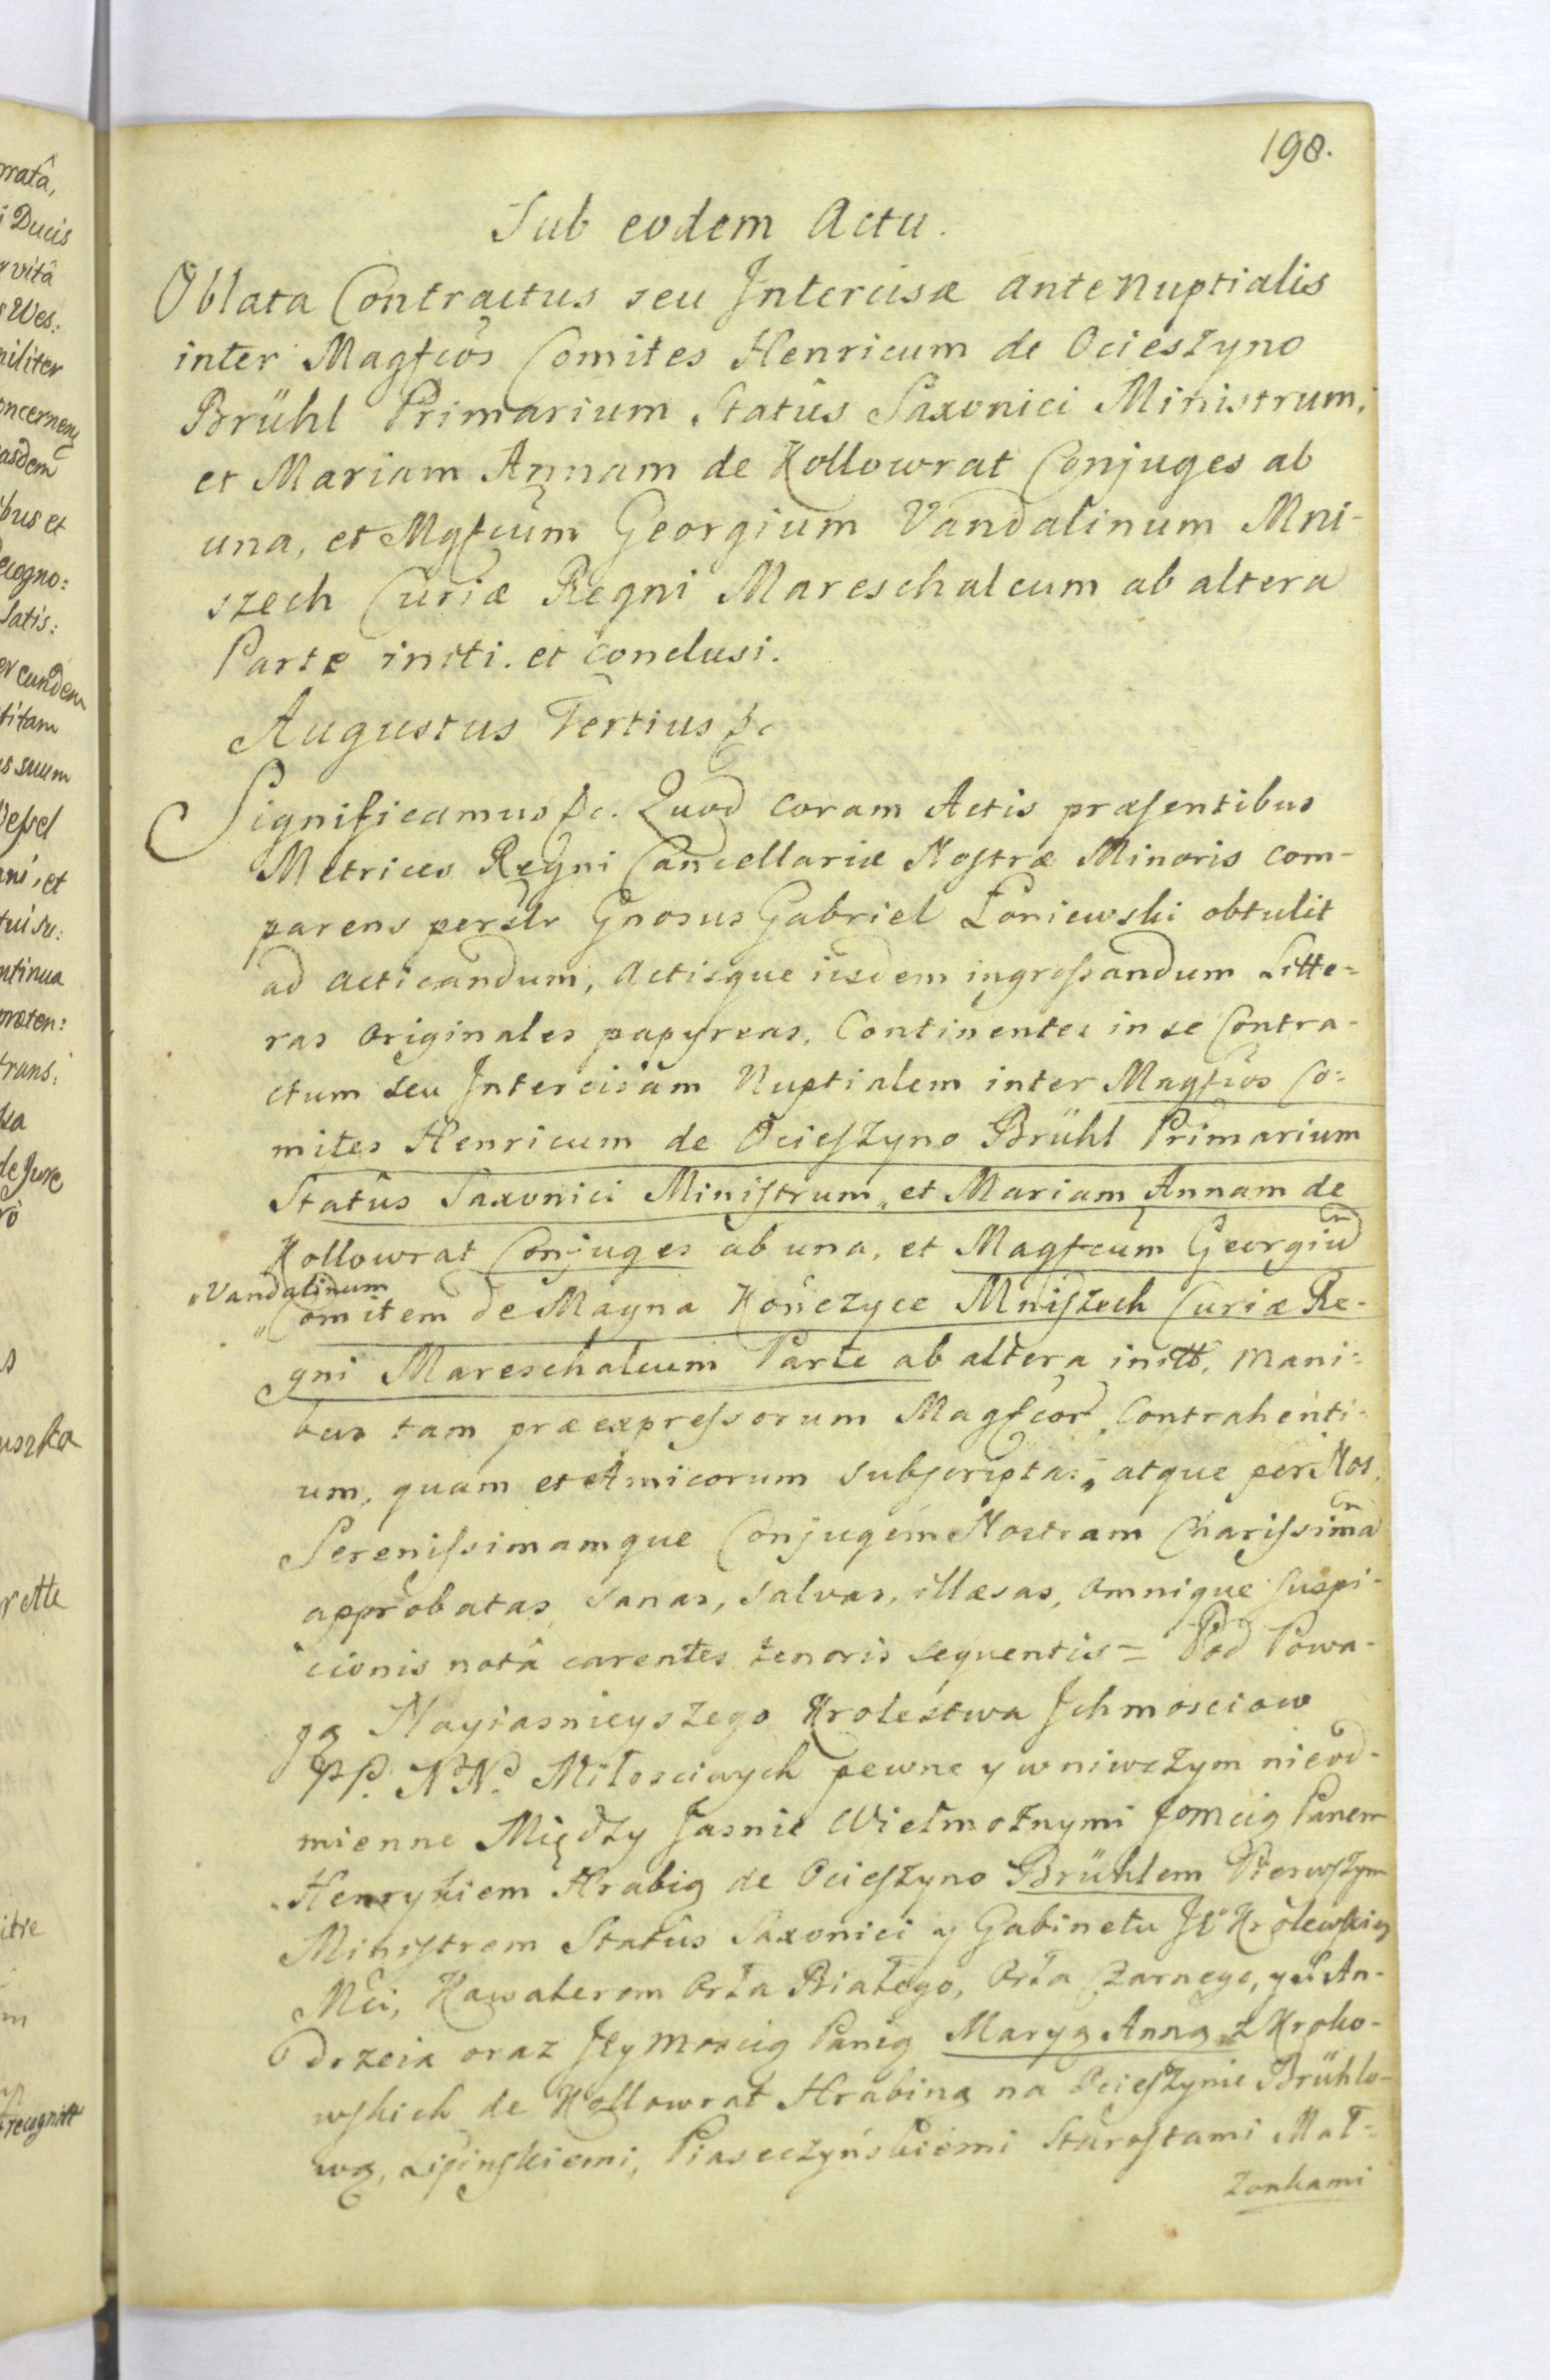 198.
Sub eodem Actu.
Oblata Contractus seu Intercisæ antenuptialis
inter Magfcos Comites Henricum de Ocieszyno
Brühl Primarium Statûs Saxonici Ministrum,
et Mariam Annam de Kollowrat Conjuges ab
una, et Mgfcum Georgium Vandalinum Mni-
szech Curiæ Regni Mareschalcum ab altera
Parte initi. et conclusi.
Augustus Tertius &c
Significamus &c. Quod coram Actis præsentibus
Metrices Regni Cancellariæ Nostræ Minoris com-
parens persltr Gnosus Gabriel Łoniewski obtulit
ad acticandum, Actisque iisdem ingrossandum Litte=
ras originales papyreas, Continentes in se Contra-
ctum seu Intercisam Nuptialem inter Magfcos Co=
mites Henricum de Ocieszyno Brühl Primarium
Statûs Saxonici Ministrum, et Mariam Annam de
Kollowrat Conjuges ab una, et Magfcum Georgiũ
Vandalinum
Comitem de Magna Kończyce Mniszech Curiæ Re-
gni Mareschalcum Parte ab altera initt. mani=
bus tam præexpressorum Magfcor. Contrahenti-
um, quam et Amicorum subscriptas, atque per Nos,
Serenissimamque Conjugem Nostram Charissimã
approbatas, sanas, salvas, illæsas, omnique suspi-
cionis notâ carentes tenoris sequentis = Pod Powa-
gą Nayiasnieyszego Krolestwa Ichmosciow
PP. NN. Miłosciwych pewne y wniwczym nieod-
mienne Między Jasnie Wielmożnymi Jomcią Panem
Henrykiem Hrabią de Ocieszyno Brühlem Pierwszym
Ministrem Statûs Saxonici y Gabinetu Jo Krolewskiey
Mci, Kawalerem Orła Białego, Orła Czarnego, y S. An-
drzeia oraz Jey Moscią Panią Maryą Anną z Kroko-
wskich de Kollowrat Hrabiną na Ocieszynie Brühlo-
wą, Lipinskiemi, Piaseczyńskiemi Starostami Mał=
żonkami